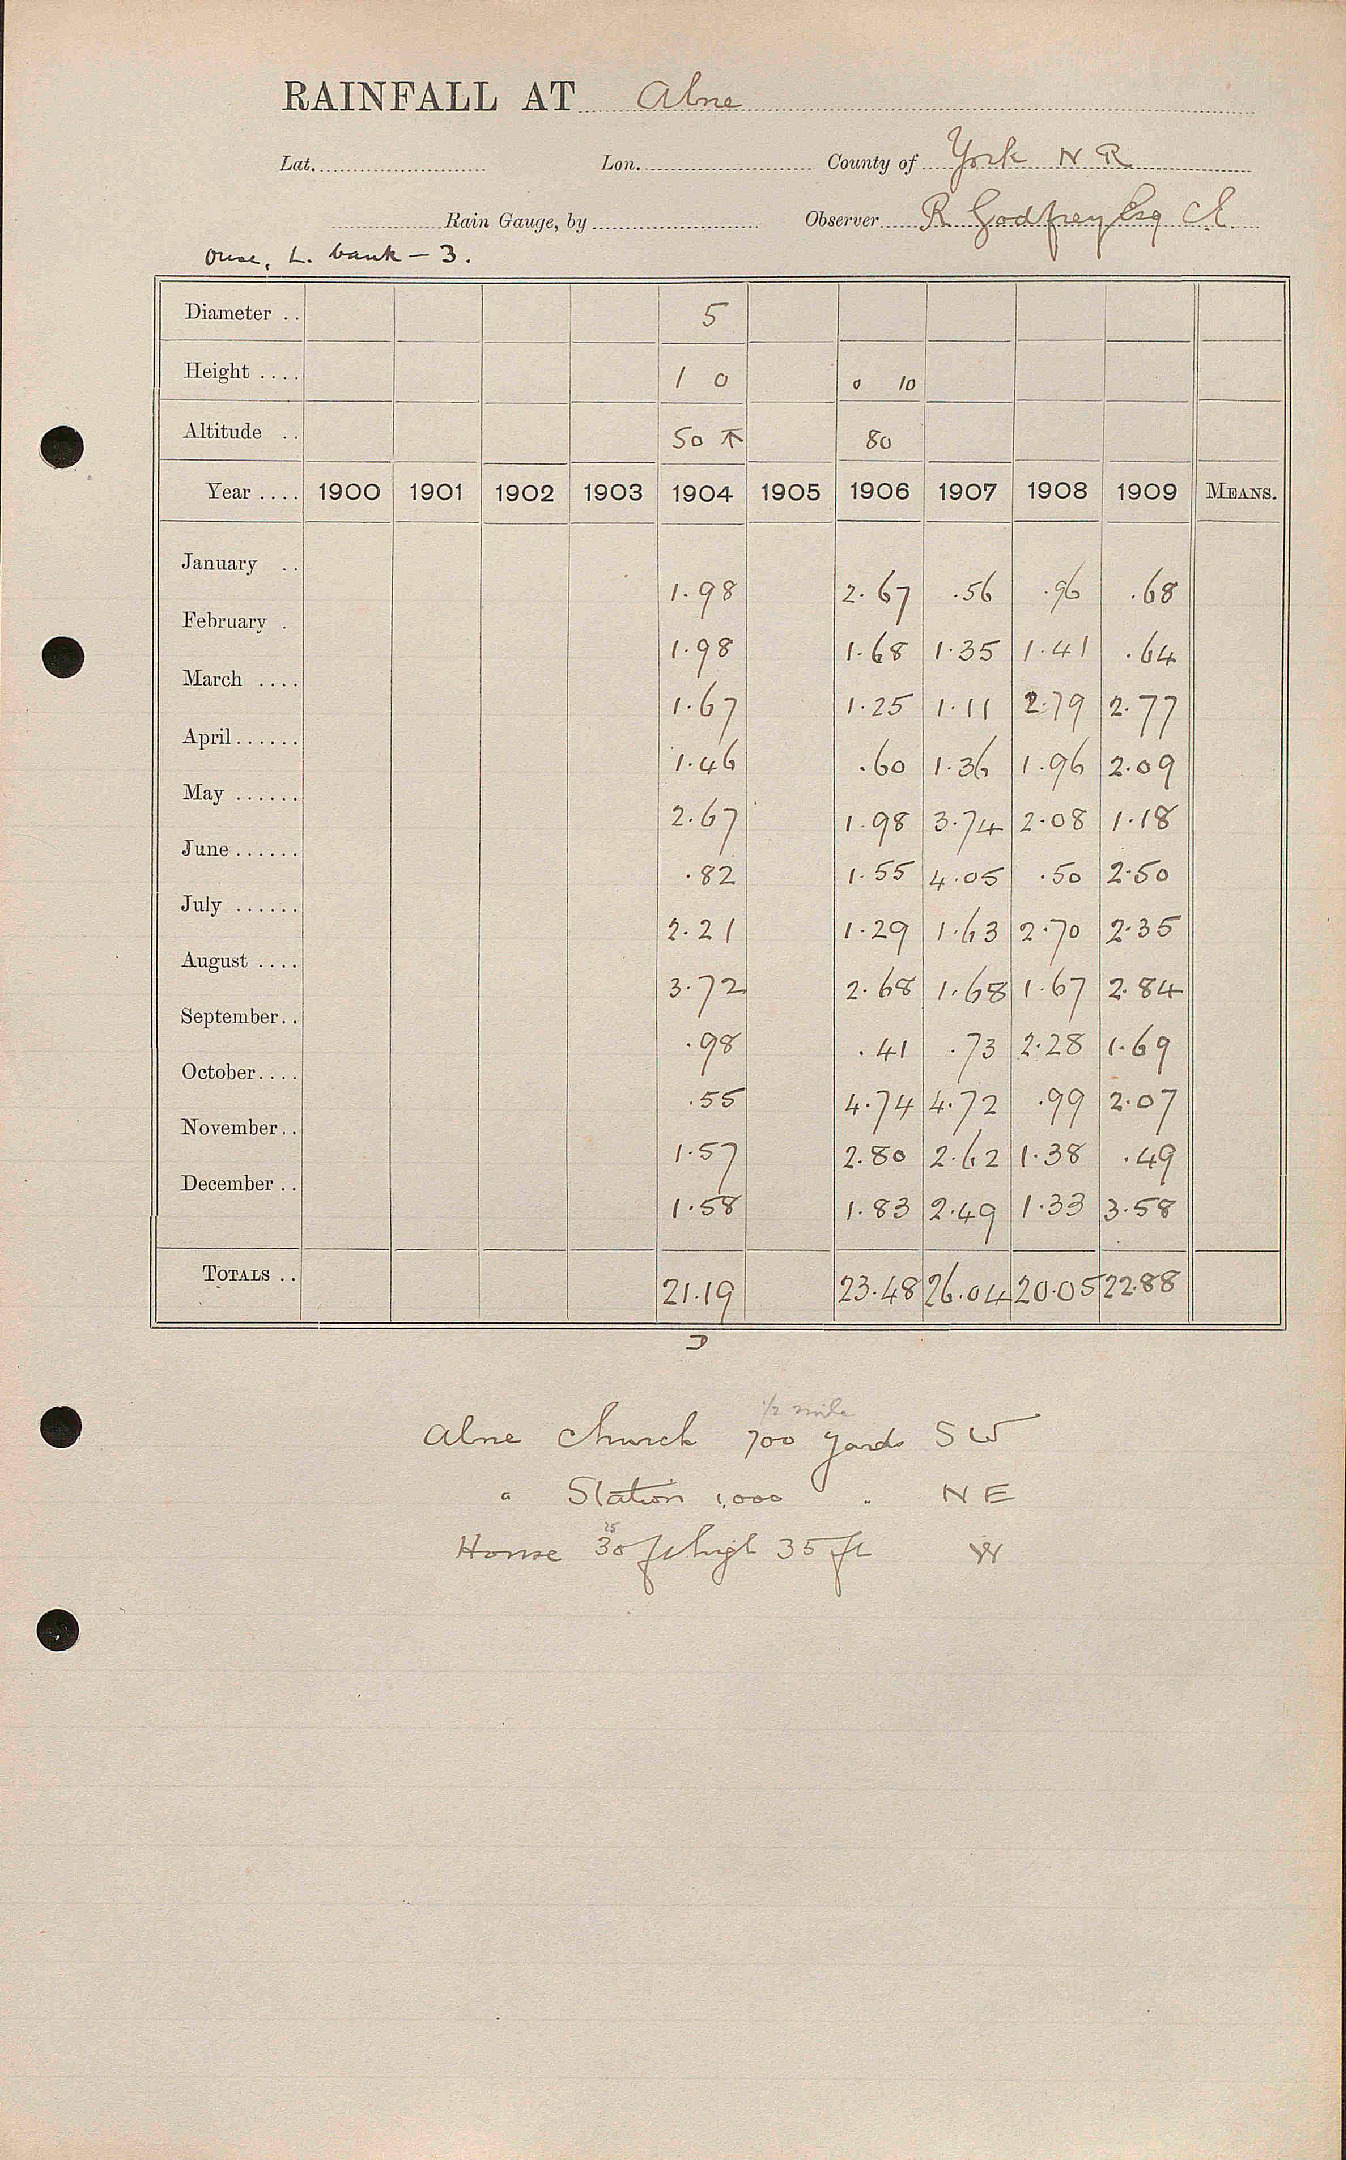 RAINFALL AT Alne
Lat. Lon. County of York N R
Rain Gauge, by Observer R Godfrey Esq C.E.
Ouse, L. bank - 3.
Diameter .. 5
Height .... 1 0 0 10
Altitude .. 50 ↑ 80
Year .... 1900 1901 1902 1903 1904 1905 1906 1907 1908 1909 MEANS.
January .. 1.98 2.67 .56 .96 .68
February . 1.98 1.68 1.35 1.41 .64
March .... 1.67 1.25 1.11 2.79 2.77
April...... 1.46 .60 1.36 1.96 2.09
May ...... 2.67 1.98 3.74 2.08 1.18
June...... .82 1.55 4.05 .50 2.50
July ...... 2.21 1.29 1.63 2.70 2.35
August .... 3.72 2.68 1.68 1.67 2.84
September.. .98 .41 .73 2.28 1.69
October.... .55 4.74 4.72 .99 2.07
November.. 1.57 2.80 2.62 1.38 .49
December .. 1.58 1.83 2.49 1.33 3.58
TOTALS .. 21.19 23.48 26.04 20.05 22.88
1/2 mile
Alne Church 700 yards SW
" Station 1,000 " NE
25
House 30 ft high 35 ft W